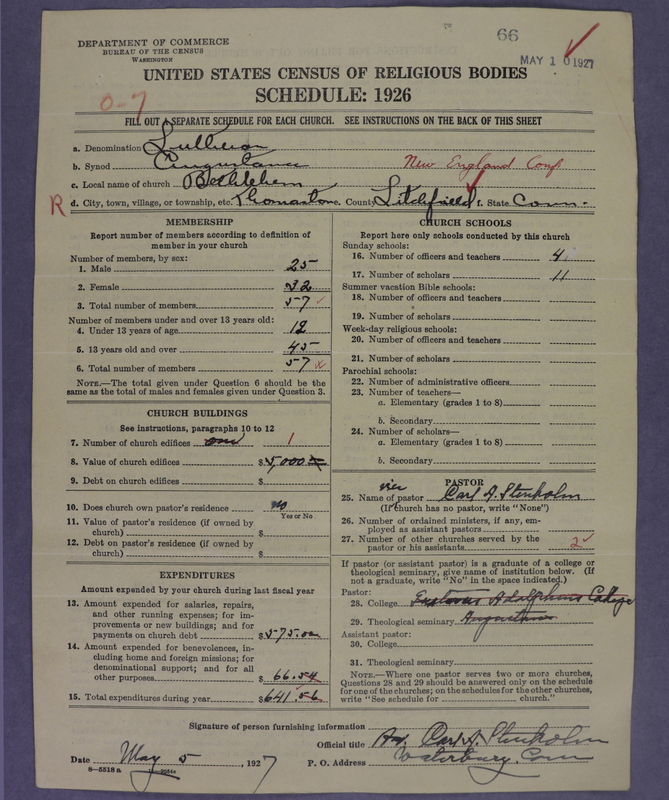 DEPARTMENT OF COMMERCE
BUREAU OF THE CENSUS
WASHINGTON
66
MAY 10 1927
UNITED STATES CENSUS OF RELIGIOUS BODIES
SCHEDULE: 1926
0-7
FILL OUT A SEPARATE SCHEDULE FOR EACH CHURCH. SEE INSTRUCTIONS ON THE BACK OF THIS SHEET
a. Denomination Lutheran
b. Synod Augustana New England Conf
c. Local name of church Bethlehem
R d. City, town, village, or township, etc. Thomaston e. County Litchfield f. State Conn.
MEMBERSHIP
Report number of members according to definition of
member in your church
Number of members, by sex:
1. Male 25
2. Female 32
3. Total number of members 57
Number of members under and over 13 years old:
4. Under 13 years of age 12
5. 13 years old and over 45
6. Total number of members 57
NOTE.—The total given under Question 6 should be the
same as the total of males and females given under Question 3.
CHURCH BUILDINGS
See instructions, paragraphs 10 to 12
7. Number of church edifices one 1
8. Value of church edifices $5,000
9. Debt on church edifices $
10. Does church own pastor's residence? no
Yes or No
11. Value of pastor's residence (if owned by
church) $
12. Debt on pastor's residence (if owned by
church) $
EXPENDITURES
Amount expended by church during last fiscal year
13. Amount expended for salaries, repairs,
and other running expenses; for im-
provements or new buildings; and for
payments on church debt $575.00
14. Amount expended for benevolences, in-
cluding home and foreign missions; for
denominational support; and for all
other purposes $66.54
15. Total expenditures during year $641.54
CHURCH SCHOOLS
Report here only schools conducted by this church
Sunday schools:
16. Number of officers and teachers 4
17. Number of scholars 11
Summer vacation Bible schools:
18. Number of officers and teachers
19. Number of scholars
Week-day religious schools:
20. Number of officers and teachers
21. Number of scholars
Parochial schools:
22. Number of administrative officers
23. Number of teachers—
a. Elementary (grades 1 to 8)
b. Secondary
24. Number of scholars—
a. Elementary (grades 1 to 8)
b. Secondary
PASTOR
vice
25. Name of pastor Carl A. Stenholm
(If church has no pastor, write "None")
26. Number of ordained ministers, if any, em-
ployed as assistant pastors
27. Number of other churches served by the
pastor or his assistants 2
If pastor (or assistant pastor) is a graduate of a college or
theological seminary, give name of institution below. (If
not a graduate, write "No" in the space indicated.)
Pastor:
28. College Gustavus Adolphus College
29. Theological seminary Augustana
Assistant pastor:
30. College
31. Theological seminary
NOTE.—Where one pastor serves two or more churches,
Questions 28 and 29 should be answered only on the schedule
for one of the churches; on the schedules for the other churches,
write "See schedule for church."
Signature of person furnishing information
Official title Carl A. Stenholm
Date May 5, 1927 P. O. Address Waterbury, Conn
8-5518a